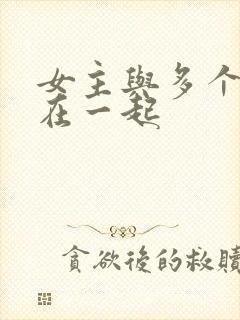 女主與多个
在一起
貪欲後的救贖